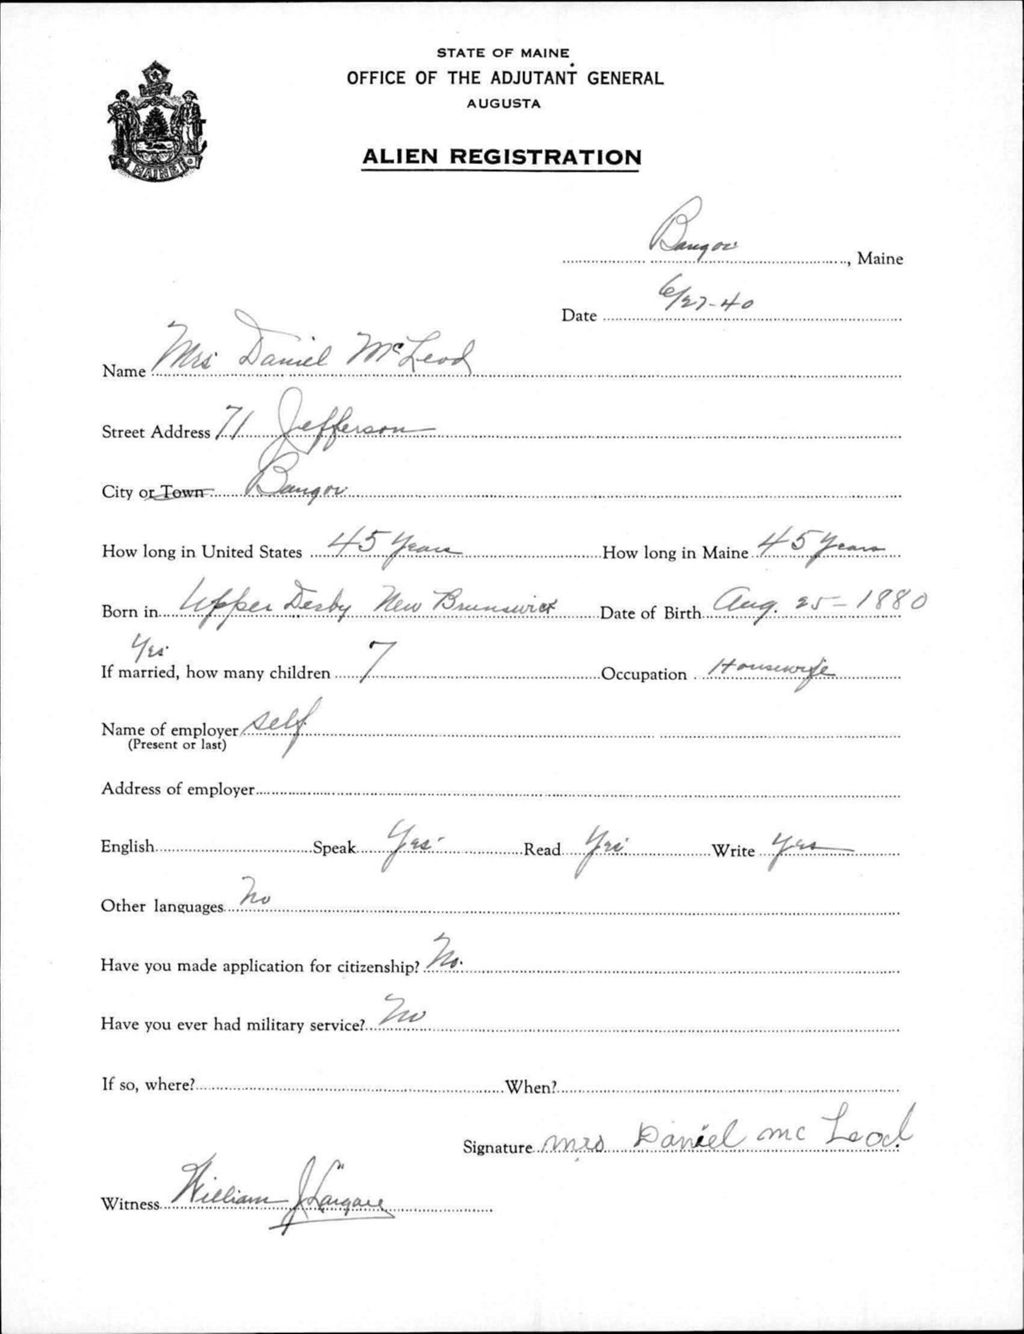 STATE OF MAINE
OFFICE OF THE ADJUTANT GENERAL
AUGUSTA
ALIEN REGISTRATION
MAINE
Bangor, Maine
Date 6/27-40
Name Mrs Daniel McLeod
Street Address 71 Jefferson
City or Town Bangor
How long in United States 45 years How long in Maine 45 years
Born in Upper Derby New Brunswick Date of Birth Aug. 25-1880
Yes
If married, how many children 7 Occupation Housewife
Name of employer self
(Present or last)
Address of employer
English Speak Yes Read Yes Write Yes
Other languages No
Have you made application for citizenship? No.
Have you ever had military service? No
If so, where? When?
Signature mrs Daniel mc Leod
Witness William J